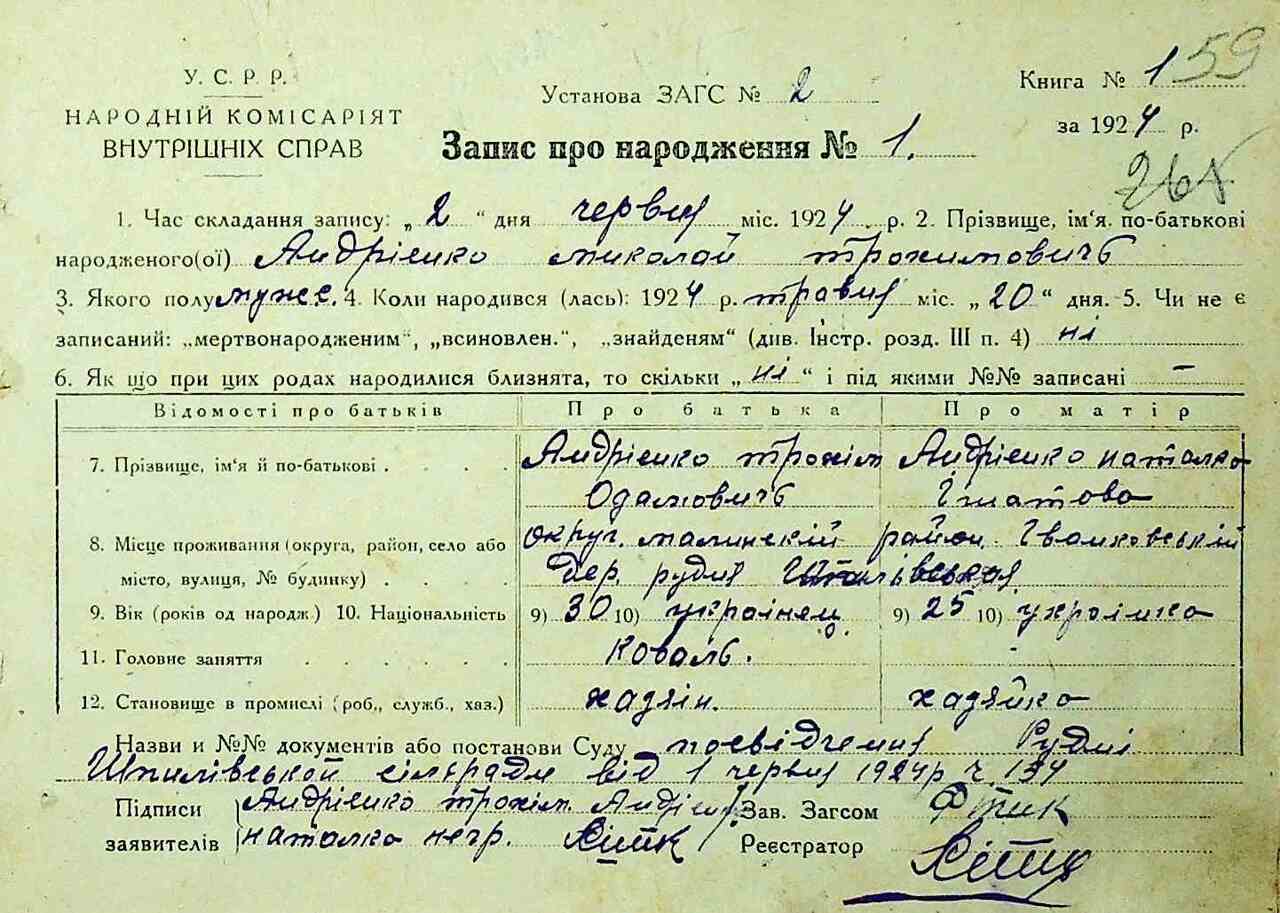 У. С. Р. Р.
НАРОДНІЙ КОМІСАРІЯТ
ВНУТРІШНІХ СПРАВ
Установа ЗАГС № 2
Книга № 1 59
за 1924 р.
Запис про народження № 1.
1. Час складання запису: „2“ дня червня міс. 1924 р. 2. Прізвище, ім‘я. по-батькові
народженого(ої) Андрієнко миколай трохимовичь
3. Якого полу мужс. 4. Коли народився (лась): 1924 р. травня міс. „20“ дня. 5. Чи не є
записаний: „мертвонародженим“, „всиновлен.“, „знайденям“ (див. Інстр. розд. III п. 4) ні
6. Як що при цих родах народилися близнята, то скільки „ні“ і під якими №№ записані –
Відомості про батьків Про батька Про матір
7. Прізвище, ім‘я й по-батькові . . . . Андрієнко трохім Андрієнко наталка
Одамовичь Ігнатова
8. Місце проживання (округа, район, село або округ. малинскій район Іванковській
місто, вулиця, № будинку) . . . . дер. рудня
9. Вік (років од народж.) 10. Національність 9) 30 10) українец 9) 25 10) українка
11. Головне заняття . . . . . . Коваль.
12. Становище в промислі (роб., служб., хаз.) хадзяін. хадзяйка
Назви и №№ документів або постанови Суду посвідчення Рудні
Шпилівської сільради від 1 червня 1924 р ч. 134
Підписи Андрієнко трохім Андрієн Зав. Загсом
заявителів наталка негр. Реєстратор